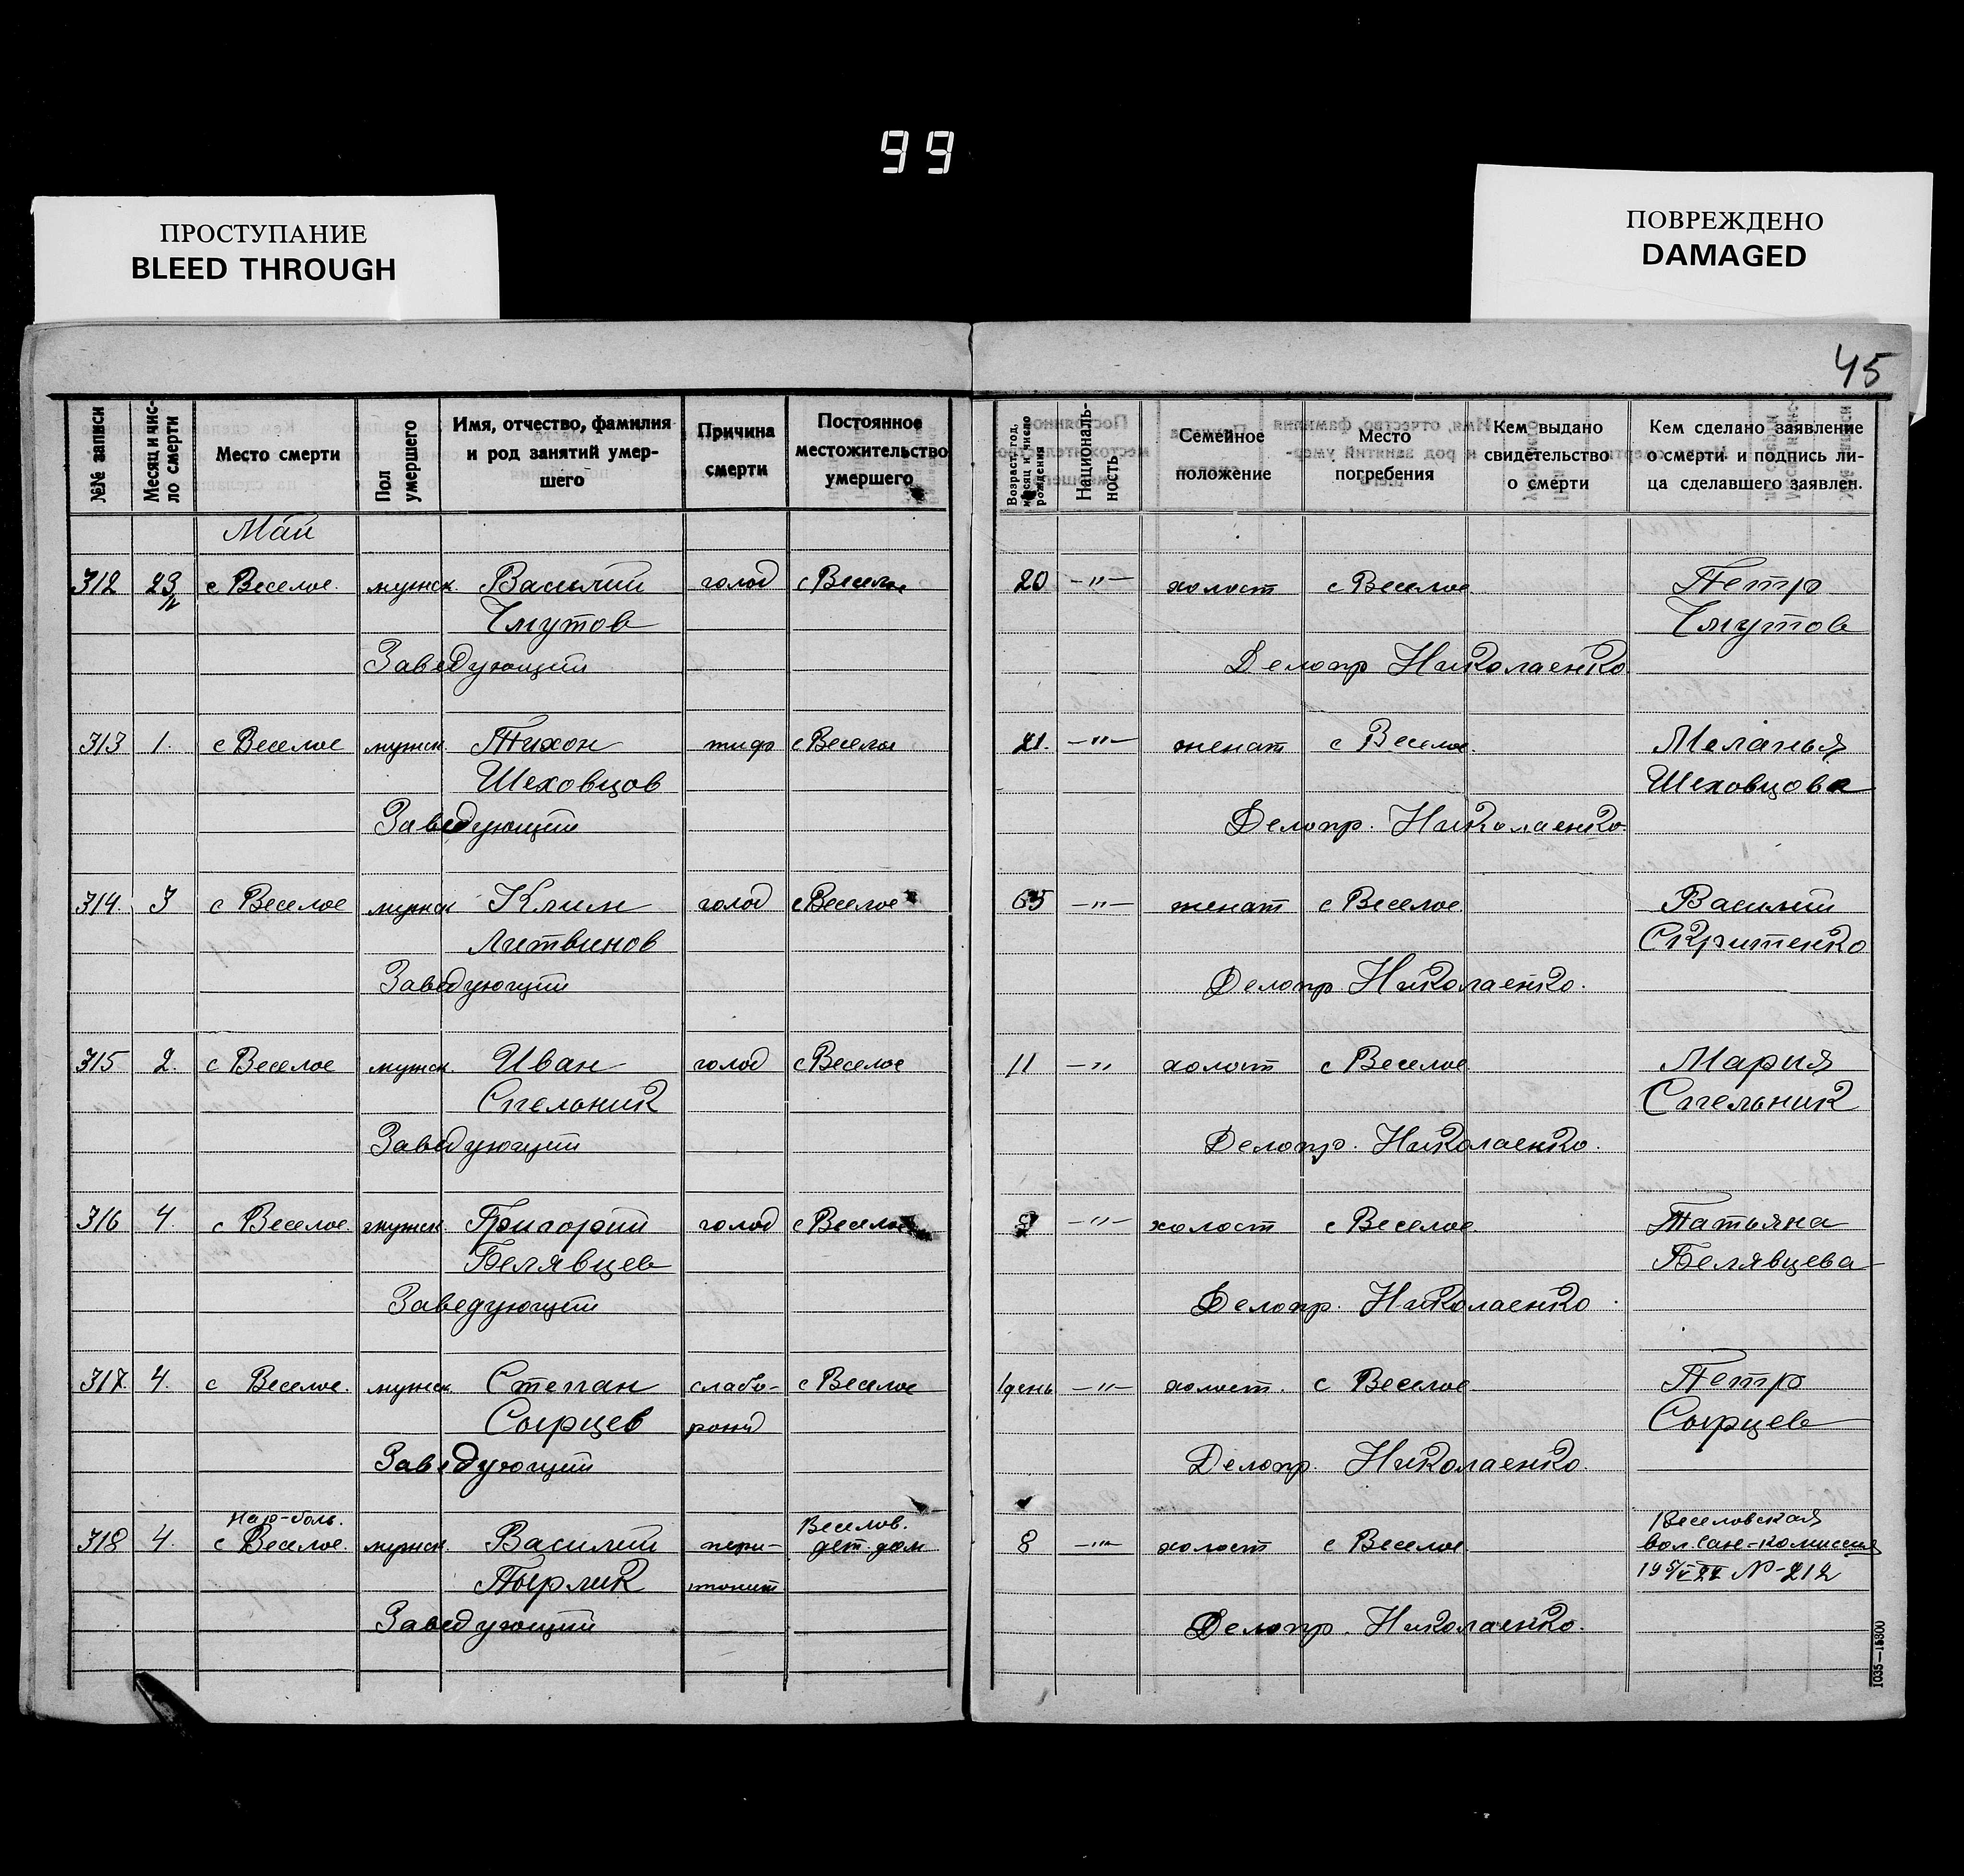 99
ПРОСТУПАНИЕ
BLEED THROUGH
ПОВРЕЖДЕНО
DAMAGED
45
№№ записи
Месяц и чис-
ло смерти
Место смерти
Пол
умершего
Имя, отчество, фамилия
и род занятий умер-
шего
Причина
смерти
Постоянное
местожительство
умершего
Возраст, год,
месяц и число
рождения
Националь-
ность
Семейное
положение
Место
погребения
Кем выдано
свидетельство
о смерти
Кем сделано заявление
о смерти и подпись ли-
ца сделавшего заявлен.
Май
312 23/IV с Веселое. мужск. Василий голод с Веселое 20 —"— холост с Веселое Петр
Чмутов Чмутов
Заведующий Делопр Николаенко
313 1. с Веселое мужск. Тихон тиф с Веселое 21. —"— женат с Веселое. Меланья
Шеховцов Шеховцова
Заведующий Делопр. Николаенко
314. 3 с Веселое мужск Клим голод с Веселое 65 —"— женат с Веселое Василий
Литвинов
Заведующий Делопр Николаенко.
315 2. с Веселое мужск. Иван голод с Веселое 11 —" холост с Веселое Мария
Стельник Стельник
Заведующий Делопр. Николаенко.
316 4. с Веселое. мужск. Григорий голод с Веселое —"— холост с Веселое Татьяна
Белявцев Белявцева
Заведующий Делопр. Николаенко
317. 4. с Веселое. мужск. Степан слабо- с Веселое 1 день —"— холост. с Веселое Петр
Сырцев рожд Сырцев
Заведующий Делопр. Николаенко.
Нар-боль. Веселов. Веселовская
318 4. с Веселое мужск. Василий пери- дет. дом 8 —"— холост с Веселое вол. Сан-комиссия
Пырлик тонит № 212
Заведующий Делопр. Николаенко.
1035—15800